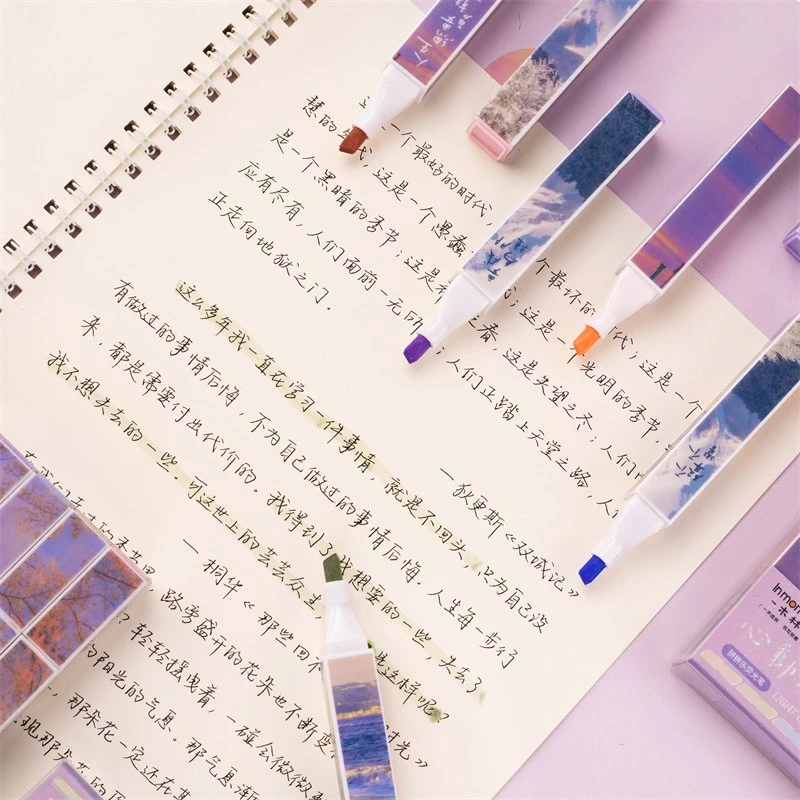 一个最好的时代,
个最坏的
代;这是一个
慧的年代,这是一个愚蠢
这是一个光明的季节,
是一个黑暗的季节;这是
之春,这是失望之冬;人们
应有尽有,人们面前一无所
;人们正踏上天堂之路,人
正走向地狱之门.
—狄更斯《双城记》
这么多年我一直在学习一件事情,就是不回头,只为自己没
有做过的事情后悔,不为自己做过的事情后悔.人生每一步行
来,都是需要付出代价的.我得到了我想要的一些,失去了
我不想失去的一些.可这世上的芸芸众生,
是这样呢?
—桐华《那些回
时光》
路旁盛开的花朵也不断变
?轻轻摇曳着,一碰会微微
的阳光的气息.那气息渐
,那朵花一定还在
现那朵
一木林
心動
拼拼乐荧光笔
LIGHT